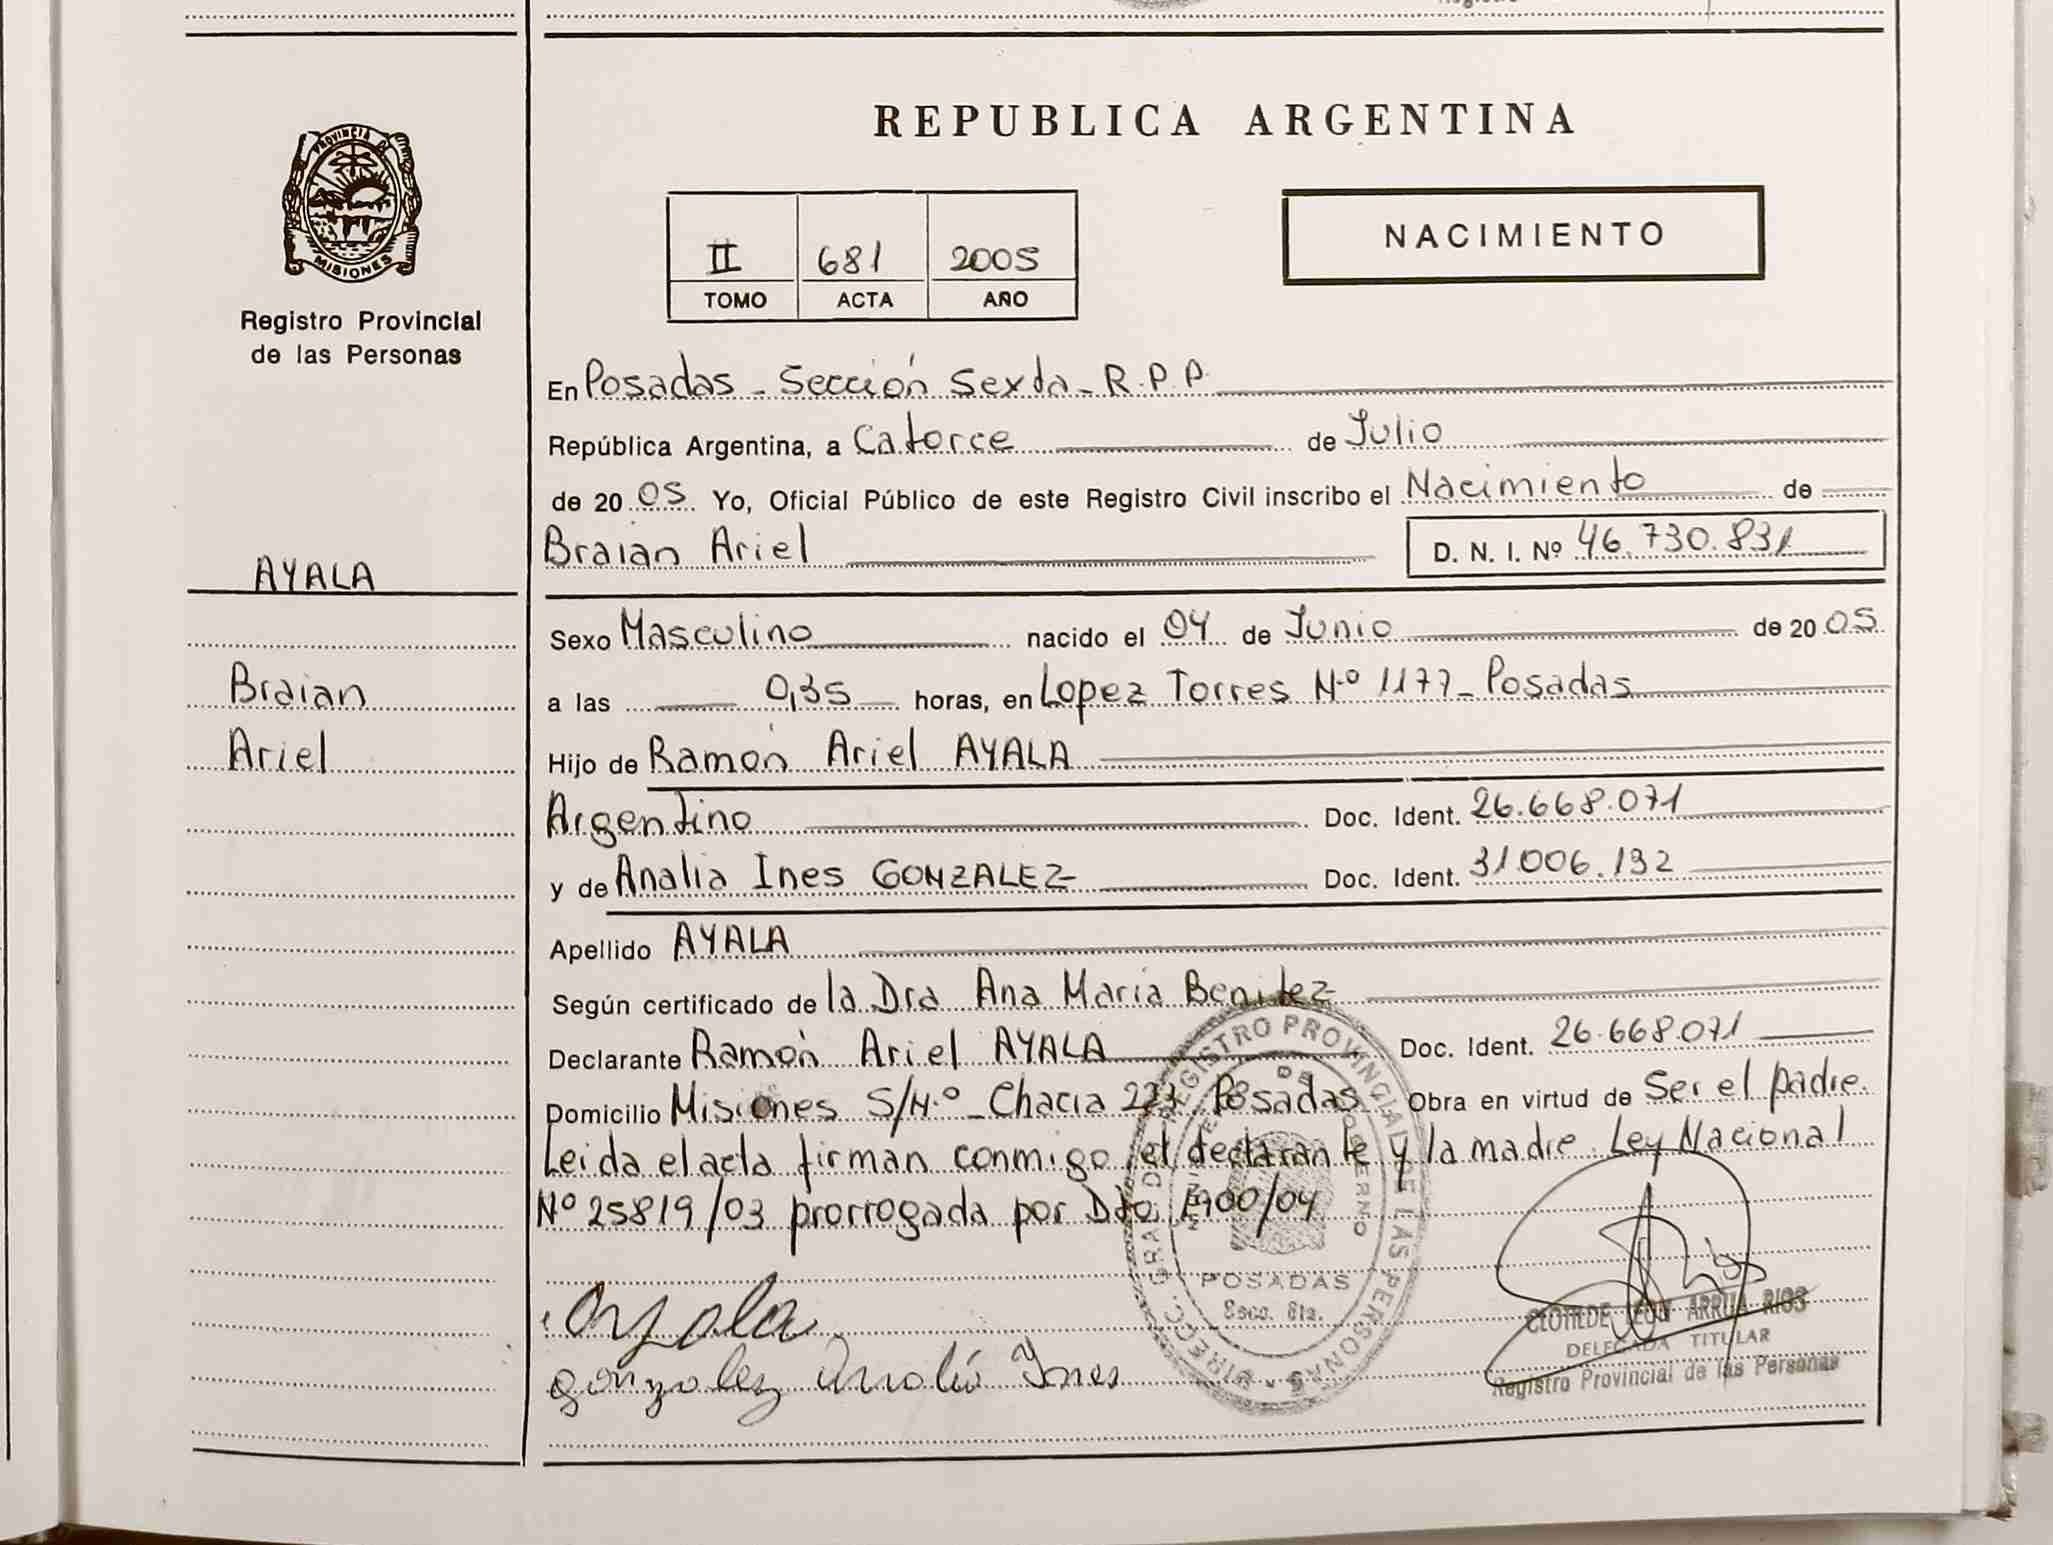 REPUBLICA ARGENTINA
PROVINCIA DE
MISIONES
Registro Provincial
de las Personas
II 681 2005
TOMO ACTA AÑO
NACIMIENTO
En Posadas - Sección Sexta - R.P.P.
República Argentina, a Catorce de Julio
de 20 05 Yo, Oficial Público de este Registro Civil inscribo el Nacimiento de
Braian Ariel D. N. I. Nº 46.730.831
AYALA
Braian
Ariel
Sexo Masculino nacido el 04 de Junio de 20 05
a las 0,35 horas, en Lopez Torres Nº 1177 - Posadas
Hijo de Ramón Ariel AYALA
Argentino Doc. Ident. 26.668.071
y de Analia Ines GONZALEZ Doc. Ident. 31.006.132
Apellido AYALA
Según certificado de la Dra Ana María Benitez
Declarante Ramón Ariel AYALA Doc. Ident. 26.668.071
Domicilio Misiones S/Nº - Chacra Posadas Obra en virtud de Ser el padre.
Leida el acta firman conmigo el declarante y la madre. Ley Nacional
Nº 25819/03 prorrogada por Dto. 1900/04
Ayala
Gonzalez Analia Ines
REGISTRO PROVINCIAL DE LAS PERSONAS
POSADAS
Secc. 6ta.
CLOTILDE LEON ARRUA RIOS
DELEGADA TITULAR
Registro Provincial de las Personas